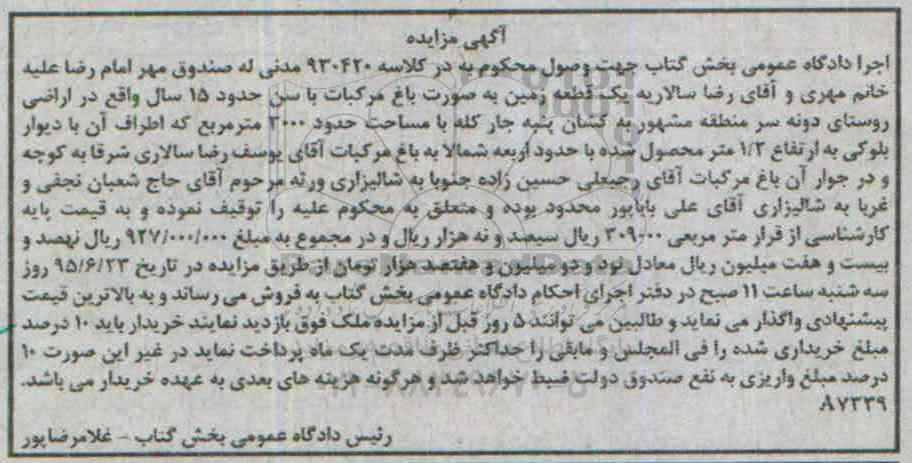 آگهی مزایده
اجرا دادگاه عمومی بخش گتاب جهت وصول محکوم به در کلاسه ۹۳۰۴۲۰ مدنی له صندوق مهر امام رضا علیه
خانم مهری و آقای رضا سالاریه یک قطعه زمین به صورت باغ مرکبات با سن حدود ۱۵ سال واقع در اراضی
روستای دونه سر منطقه مشهور به کشان پنبه جار کله با مساحت حدود ۳۰۰۰ مترمربع که اطراف آن با دیوار
بلوکی به ارتفاع ۱/۲ متر محصول شده با حدود اربعه شمالا به باغ مرکبات آقای یوسف رضا سالاری شرقا به کوچه
و در جوار آن باغ مرکبات آقای رجبعلی حسین زاده جنوبا به شالیزاری ورثه مرحوم آقای حاج شعبان نجفی و
غربا به شالیزاری آقای علی باباپور محدود بوده و متعلق به محکوم علیه را توقیف نموده و به قیمت پایه
کارشناسی از قرار متر مربعی ۳۰۹۰۰۰ ریال سیصد و نه هزار ریال و در مجموع به مبلغ ۹۲۷/۰۰۰/۰۰۰ ریال نهصد و
بیست و هفت میلیون ریال معادل نود و دو میلیون و هفتصد هزار تومان از طریق مزایده در تاریخ ۹۵/۶/۲۳ روز
سه شنبه ساعت ۱۱ صبح در دفتر اجرای احکام دادگاه عمومی بخش گتاب به فروش می رساند و به بالاترین قیمت
پیشنهادی واگذار می نماید و طالبین می توانند ۵ روز قبل از مزایده ملک فوق بازدید نمایند خریدار باید ۱۰ درصد
مبلغ خریداری شده را فی المجلس و مابقی را حداکثر ظرف مدت یک ماه پرداخت نماید در غیر این صورت ۱۰
درصد مبلغ واریزی به نفع صندوق دولت ضبط خواهد شد و هرگونه هزینه های بعدی به عهده خریدار می باشد.
۸۷۳۳۹
رئیس دادگاه عمومی بخش گتاب - غلامرضاپور